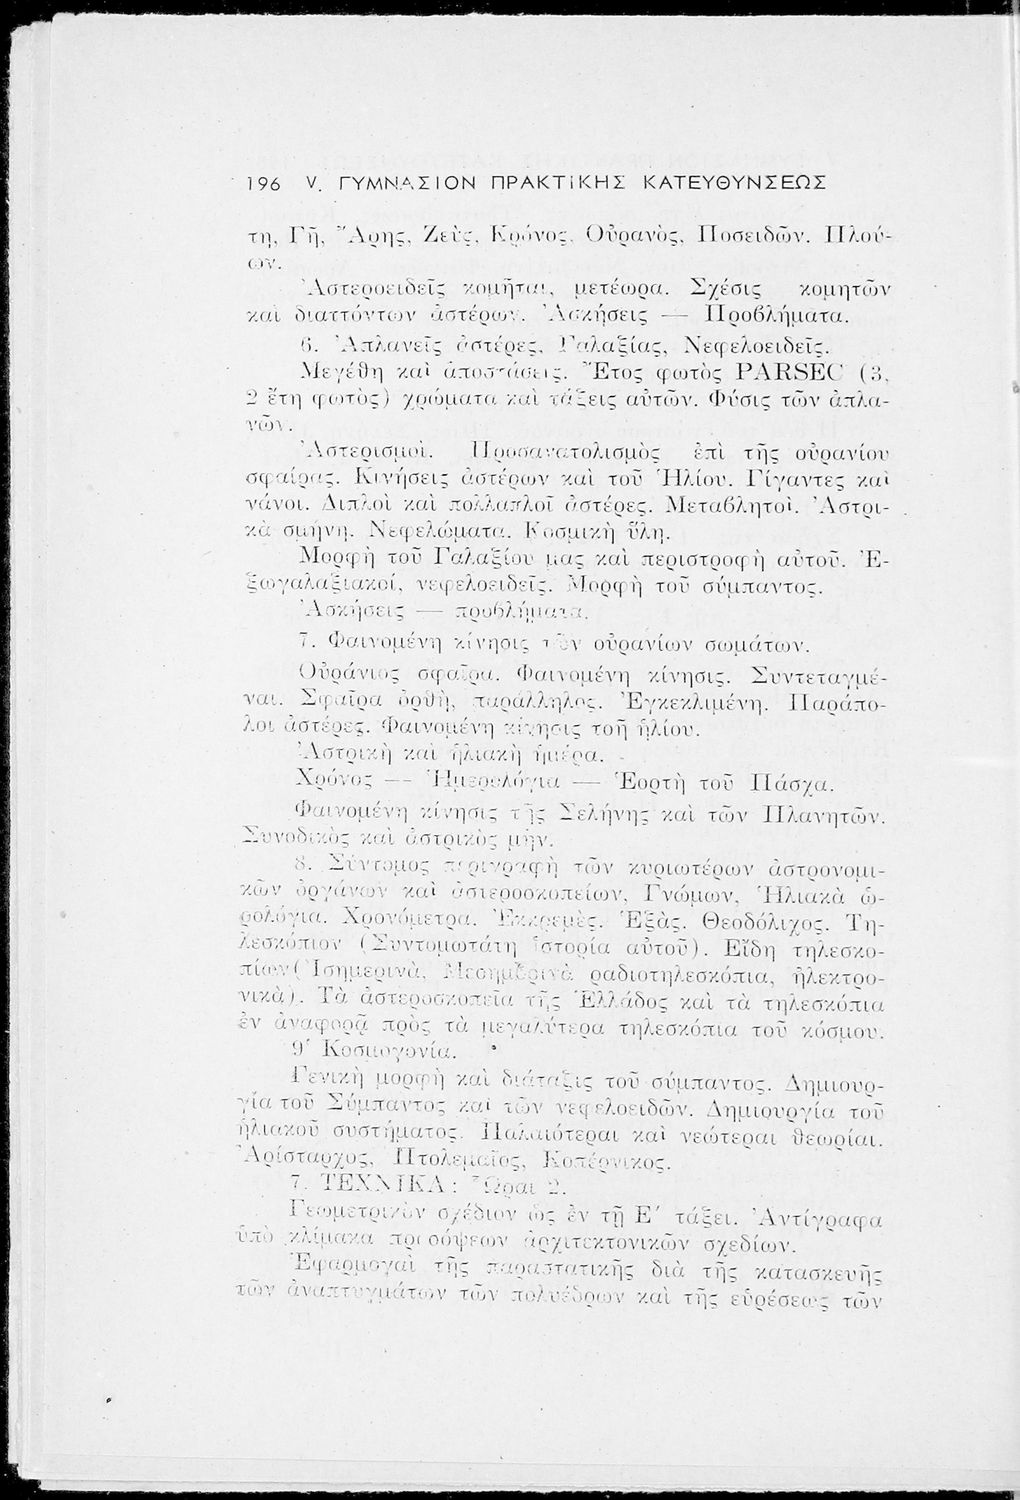 196 V. ΓΥΜΝΑΣΙΟΝ ΠΡΑΚΤΙΚΗΣ ΚΑΤΕΥΘΥΝΣΕΩΣ
τη, Γῆ, Ἄρης, Ζεὺς, Κρόνος, Οὐρανὸς, Ποσειδῶν. Πλού-
ων.
Ἀστεροειδεῖς κομῆται, μετέωρα. Σχέσις κομητῶν
καὶ διαττόντων ἀστέρων. Ἀσκήσεις — Προβλήματα.
6. Ἀπλανεῖς ἀστέρες, Γαλαξίας, Νεφελοειδεῖς.
Μεγέθη καὶ ἀποστάσεις. Ἔτος φωτὸς PARSEC (3,
2 ἔτη φωτὸς) χρώματα καὶ τάξεις αὐτῶν. Φύσις τῶν ἀπλα-
νῶν.
Ἀστερισμοὶ. Προσανατολισμὸς ἐπὶ τῆς οὐρανίου
σφαίρας. Κινήσεις ἀστέρων καὶ τοῦ Ἡλίου. Γίγαντες καὶ
νάνοι. Διπλοὶ καὶ πολλαπλοῖ ἀστέρες. Μεταβλητοὶ. Ἀστρι-
κὰ σμήνη. Νεφελώματα. Κοσμικὴ ὕλη.
Μορφὴ τοῦ Γαλαξίου μας καὶ περιστροφὴ αὐτοῦ. Ἐ-
ξωγαλαξιακοί, νεφελοειδεῖς. Μορφὴ τοῦ σύμπαντος.
Ἀσκήσεις — προβλήματα.
7. Φαινομένη κίνησις τῶν οὐρανίων σωμάτων.
Οὐράνιος σφαῖρα. Φαινομένη κίνησις. Συντεταγμέ-
ναι. Σφαῖρα ὀρθὴ, παράλληλος. Ἐγκεκλιμένη. Παράπο-
λοι ἀστέρες. Φαινομένη κίνησις τοῆ ἡλίου.
Ἀστρικὴ καὶ ἡλιακὴ ἡμέρα.
Χρόνος — Ἡμερολόγια — Ἑορτὴ τοῦ Πάσχα.
Φαινομένη κίνησις τῆς Σελήνης καὶ τῶν Πλανητῶν.
Συνοδικὸς καὶ ἀστρικὸς μὴν.
8. Σύντομος περιγραφὴ τῶν κυριωτέρων ἀστρονομι-
κῶν ὀργάνων καὶ ἀστεροσκοπείων, Γνώμων, Ἡλιακὰ ὡ-
ρολόγια. Χρονόμετρα. Ἐκκρεμὲς. Ἑξὰς. Θεοδόλιχος. Τη-
λεσκόπιον (Συντομωτάτη ἱστορία αὐτοῦ). Εἴδη τηλεσκο-
πίων (Ἰσημερινὰ, Μεσημβρινὰ ραδιοτηλεσκόπια, ἠλεκτρο-
νικὰ). Τὰ ἀστεροσκοπεῖα τῆς Ἑλλάδος καὶ τὰ τηλεσκόπια
ἐν ἀναφορᾷ πρὸς τὰ μεγαλύτερα τηλεσκόπια τοῦ κόσμου.
9' Κοσμογονία.
Γενικὴ μορφὴ καὶ διάταξις τοῦ σύμπαντος. Δημιουρ-
γία τοῦ Σύμπαντος καὶ τῶν νεφελοειδῶν. Δημιουργία τοῦ
ἡλιακοῦ συστήματος. Παλαιότεραι καὶ νεώτεραι θεωρίαι.
Ἀρίσταρχος, Πτολεμαῖος, Κοπέρνικος.
7. ΤΕΧΝΙΚΑ: Ὧραι 2.
Γεωμετρικὸν σχέδιον ὡς ἐν τῇ Ε' τάξει. Ἀντίγραφα
ὑπὸ κλίμακα προσόψεων ἀρχιτεκτονικῶν σχεδίων.
Ἐφαρμογαὶ τῆς παραστατικῆς διὰ τῆς κατασκευῆς
τῶν ἀναπτυγμάτων τῶν πολυέδρων καὶ τῆς εὑρέσεως τῶν